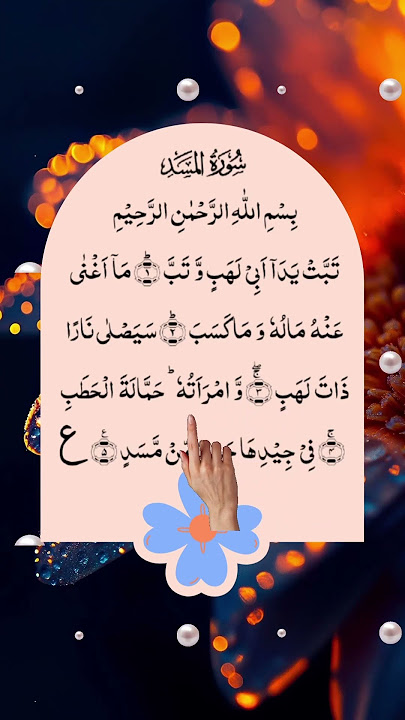 سُوْرَةُ المَسَدِ
بِسْمِ اللّٰهِ الرَّحْمٰنِ الرَّحِيْمِ
تَبَّتْ يَدَاۤ اَبِيْ لَهَبٍ وَّ تَبَّ ؕ﴿۱﴾ مَاۤ اَغْنٰى
عَنْهُ مَالُهٗ وَ مَا كَسَبَ ؕ﴿۲﴾ سَيَصْلٰى نَارًا
ذَاتَ لَهَبٍ ﴿۳﴾ۚۖ وَّ امْرَاَتُهٗ ؕ حَمَّالَةَ الْحَطَبِ
﴿۴﴾ۚ فِيْ جِيْدِهَا مِّنْ مَّسَدٍ ﴿۵﴾ ع